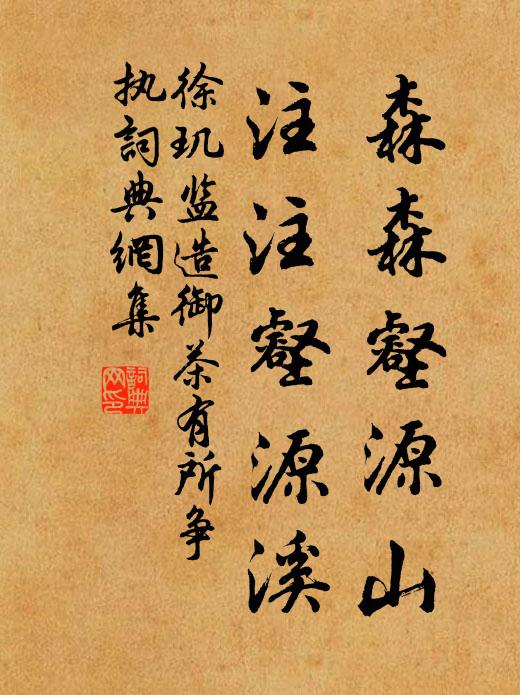 森森壑源山
注注壑源溪
徐玑监造御茶有所争
执詞典網集
詞典
网印